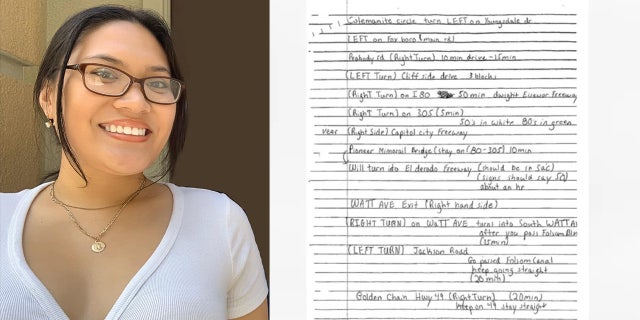 Colemanite circle turn LEFT on Youngsdale dr
LEFT on Foxboro (main rd)
Peabody rd (Right Turn) 10 min drive - 15min
(LEFT Turn) Cliff side drive 3 blocks
(Right Turn) on I 80 50 min dwight Eisenhower Freeway
(Right Turn) on 305 (5min)
50's in white 80's in green
veer (Right Side) Capitol city Freeway
Pioneer Mimorail Bridge (stay on (80-305) 10min
Will turn into El derado Freeway (should be in Sac)
(signs should say 50)
about an hr
WATT AVE Exit (Right hand side)
(RIGHT TURN) on WATT AVE turns into South WATT AV
after you pass Folsom Blvd
(15min)
(LEFT TURN) Jackson Road
Go passed Folsom Canal
keep going straight
(20 min)
Golden Chain Hwy 49 (Right Turn) (20min)
keep on 49 stay straight